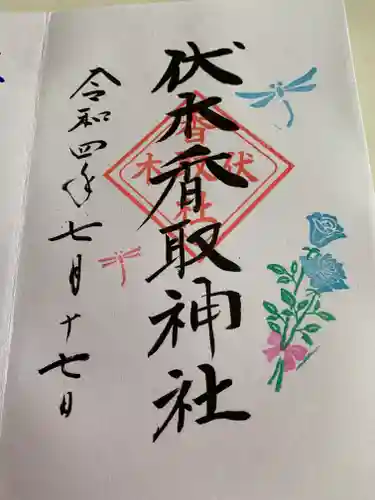 伏木香取神社
令和四年七月十七日
香取
伏木
社